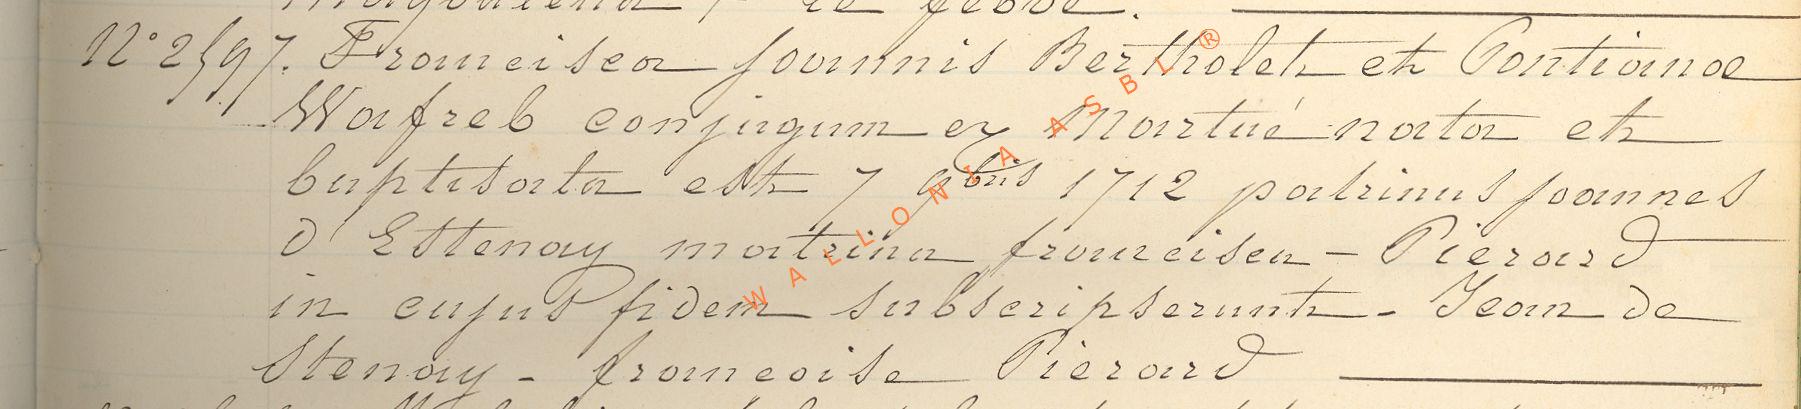 N° 2597. Francisca Joannis Bertholet et Pontianae
Wafreb conjugum ex Martué nata et
baptisata est 7 9bris 1712 patrinus Joannes
d'Estenay matrina francisca - Pierard
in cujus fidem subscripserunt - Jean de
Stenay - francoise Pierard
WALLONIA ASBL ®